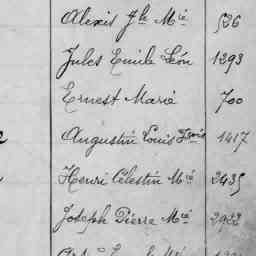 Alexis Jh Mie 526
Jules Emile Léon 1293
Ernest Marie 700
Augustin Louis Fçois 1417
Henri Célestin Mie 2435
Joseph Pierre Mie 2922